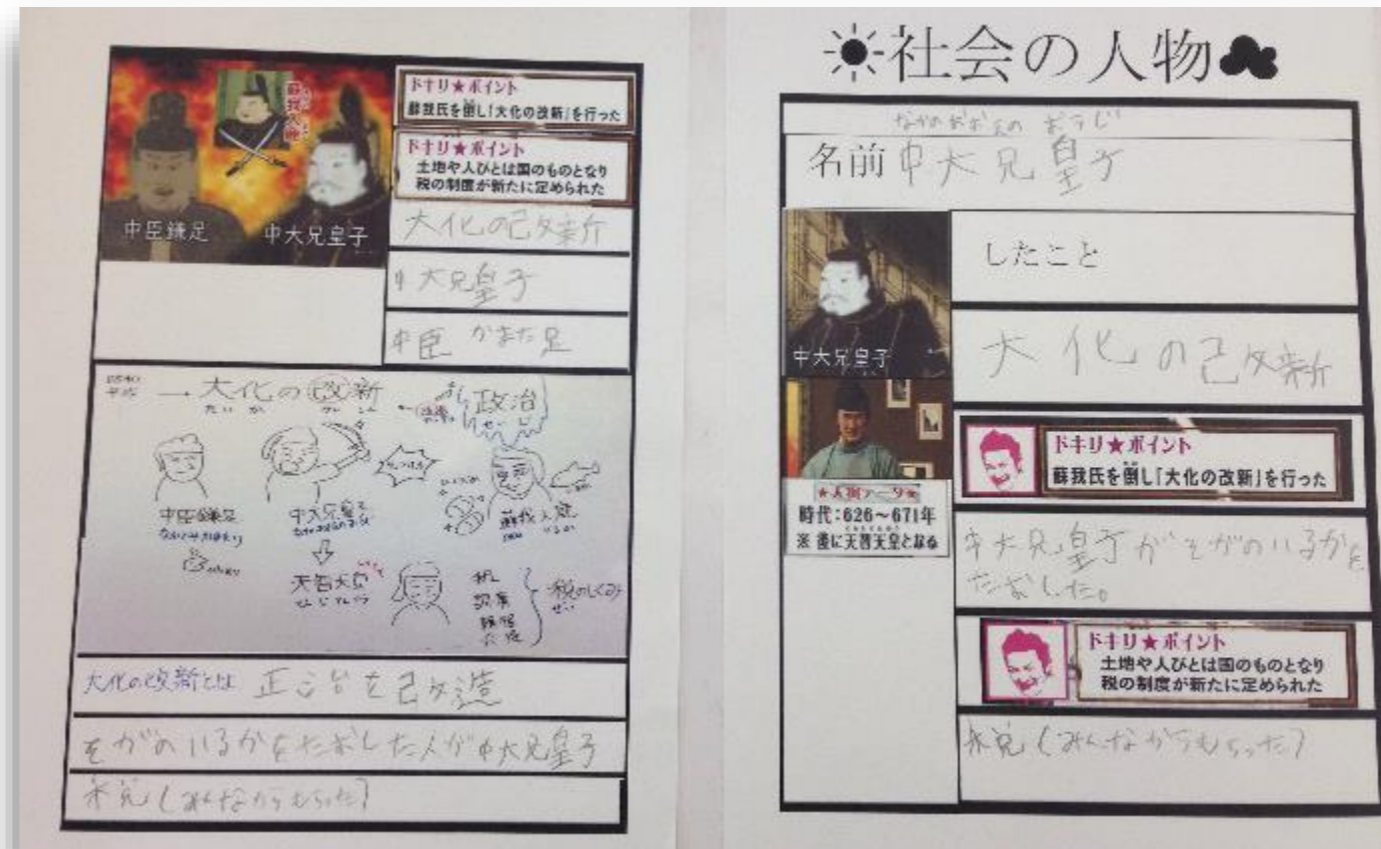 蘇我入鹿
中臣鎌足
中大兄皇子
ドキリ★ポイント
蘇我氏を倒し「大化の改新」を行った
ドキリ★ポイント
土地や人びとは国のものとなり
税の制度が新たに定められた
大化の改新
中大兄皇子
中臣 かまた足
→大化の改新
たいか
政治
中臣鎌足
中大兄皇子
蘇我入鹿
天智天皇
税のしくみ
ぜい
大化の改新とは 正治を改造
そがのいるかをたおした人が中大兄皇子
(みんなからもらった)
☀社会の人物☁
なかのおおえの おうじ
名前 中大兄皇子
中大兄皇子
★人物データ★
時代:626~671年
※後に天智天皇となる
したこと
大化の改新
ドキリ★ポイント
蘇我氏を倒し「大化の改新」を行った
中大兄皇子がそがのいるかを
たおした。
ドキリ★ポイント
土地や人びとは国のものとなり
税の制度が新たに定められた
(みんなからもらった)